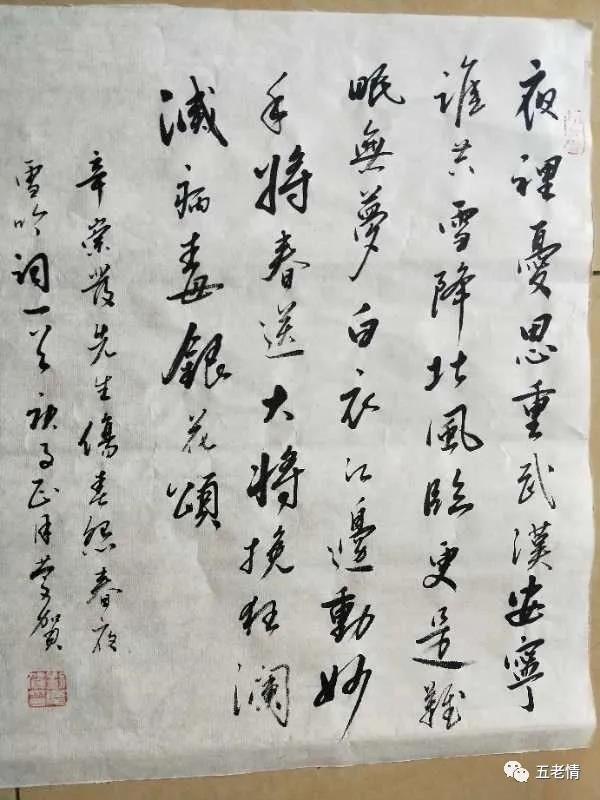 夜裡憂思重武漢安寧
誰共雪降北風臨更是難
眠無夢白衣江邊動妙
手將春送大將挽狂瀾
滅病毒銀花頌
辛黨發先生傷春怨春夜
雪吟詞一首 正月 賀
五老情